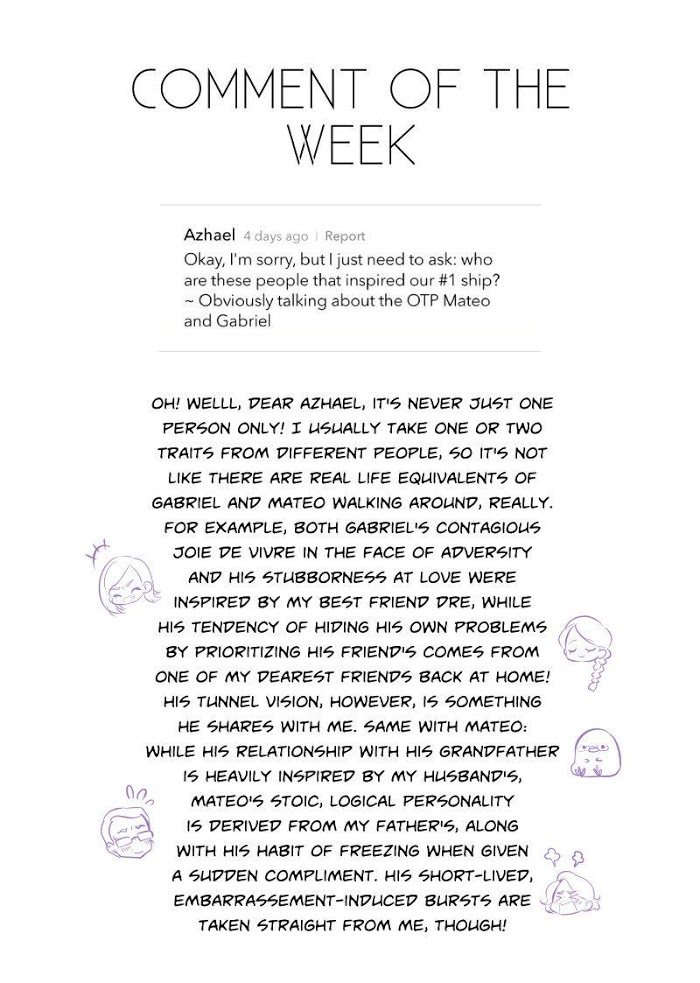 COMMENT OF THE
WEEK
Azhael 4 days ago | Report
Okay, I'm sorry, but I just need to ask: who
are these people that inspired our #1 ship?
~ Obviously talking about the OTP Mateo
and Gabriel
OH! WELLL, DEAR AZHAEL, IT'S NEVER JUST ONE
PERSON ONLY! I USUALLY TAKE ONE OR TWO
TRAITS FROM DIFFERENT PEOPLE, SO IT'S NOT
LIKE THERE ARE REAL LIFE EQUIVALENTS OF
GABRIEL AND MATEO WALKING AROUND, REALLY.
FOR EXAMPLE, BOTH GABRIEL'S CONTAGIOUS
JOIE DE VIVRE IN THE FACE OF ADVERSITY
AND HIS STUBBORNESS AT LOVE WERE
INSPIRED BY MY BEST FRIEND DRE, WHILE
HIS TENDENCY OF HIDING HIS OWN PROBLEMS
BY PRIORITIZING HIS FRIEND'S COMES FROM
ONE OF MY DEAREST FRIENDS BACK AT HOME!
HIS TUNNEL VISION, HOWEVER, IS SOMETHING
HE SHARES WITH ME. SAME WITH MATEO:
WHILE HIS RELATIONSHIP WITH HIS GRANDFATHER
IS HEAVILY INSPIRED BY MY HUSBAND'S,
MATEO'S STOIC, LOGICAL PERSONALITY
IS DERIVED FROM MY FATHER'S, ALONG
WITH HIS HABIT OF FREEZING WHEN GIVEN
A SUDDEN COMPLIMENT. HIS SHORT-LIVED,
EMBARRASSEMENT-INDUCED BURSTS ARE
TAKEN STRAIGHT FROM ME, THOUGH!